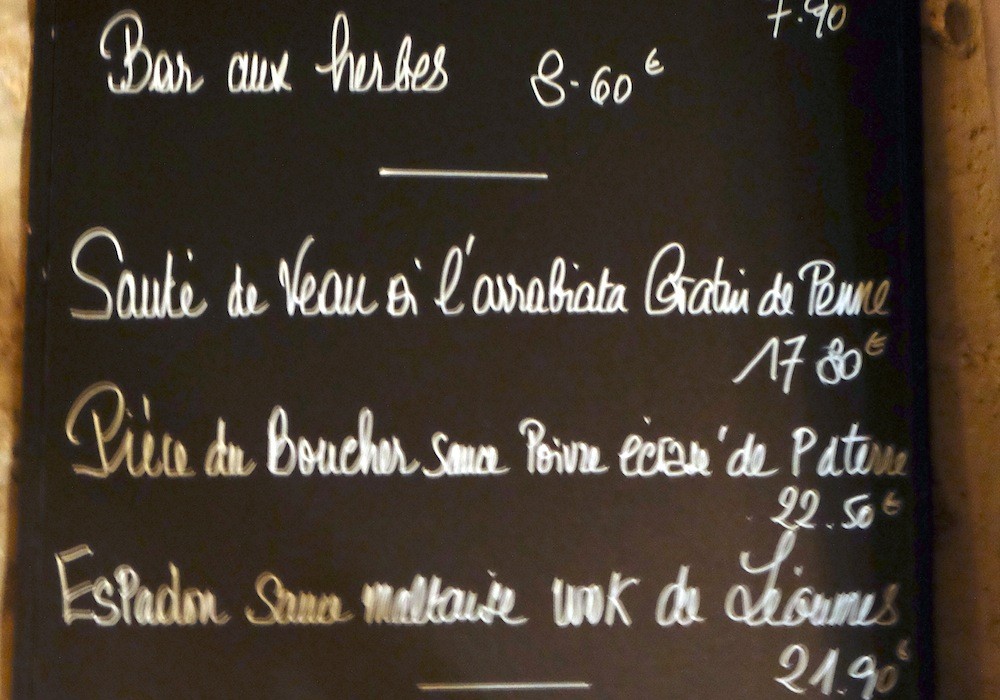 7.90
Bar aux herbes 8.60€
Sauté de Veau à l'arrabiata Gratin de Penne
17 80€
Pièce du Boucher sauce Poivre écrasé de P d terre
22.50€
Espadon Sauce maltaise wok de Légumes
21.90€